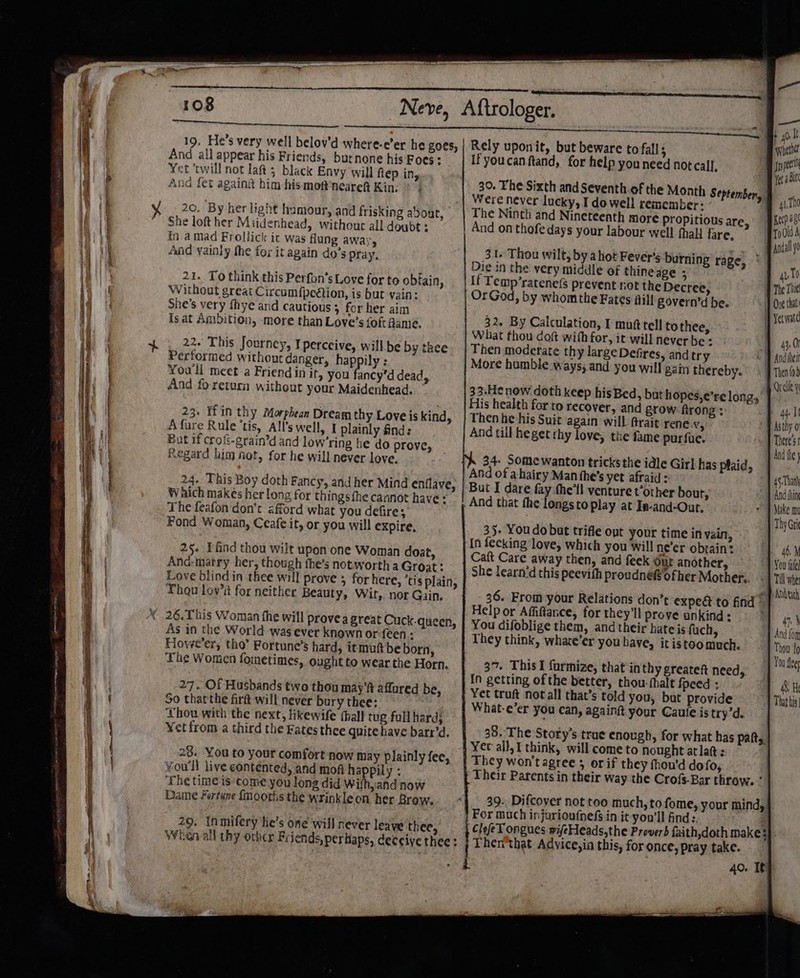 108 Neve, Aſtrologer.
19. He's very well belov'd where-e'er he goes,
And all appear his Friends, but none his Foes:
Yet 'twill not laſt; black Envy will ſtep in,
And ſet againſt him his moſt neareſt Kin.
20. By her light humour, and frisking about,
She loſt her Maidenhead, without all doubt:
In a mad Frollick it was flung away,
And vainly ſhe for it again do's pray.
21. To think this Perſon's Love for to obtain,
Without great Circumſpection, is but vain:
She's very ſhye and cautious; for her aim
Is at Ambition, more than Love's ſoft flame.
22. This Journey, I perceive, will be by thee
Performed without danger, happily:
You'll meet a Friend in it, you fancy'd dead,
And ſo return without your Maidenhead.
23. If in thy Morphean Dream thy Love is kind,
A ſure Rule 'tis, All's well, I plainly find:
But if croſs-grain'd and low'ring he do prove,
Regard him not, for he will never love.
24. This Boy doth Fancy, and her Mind enſlave,
Which makes her long for things ſhe cannot have:
The ſeaſon don't afford what you deſire;
Fond Woman, Ceaſe it, or you will expire.
25. I find thou wilt upon one Woman doat,
And marry her, though ſhe's not worth a Groat:
Love blind in thee will prove; for here, 'tis plain,
Thou lov'ſt for neither Beauty, Wit, nor Gain.
26. This Woman ſhe will prove a great Cuck-queen,
As in the World was ever known or ſeen:
Howe'er, tho' Fortune's hard, it muſt be born,
The Women ſometimes, ought to wear the Horn.
27. Of Husbands two thou may'ſt aſſured be,
So that the firſt will never bury thee:
Thou with the next, likewiſe ſhall tug full hard;
Yet from a third the Fates thee quite have barr'd.
28. You to your comfort now may plainly ſee,
You'll live contented, and moſt happily:
The time is come you long did Wiſh, and now
Dame Fortune ſmooths the wrinkle on her Brow.
29. In miſery he's one will never leave thee,
When all thy other Friends, perhaps, deceive thee:
Rely upon it, but beware to fall;
If you can ſtand, for help you need not call.
30. The Sixth and Seventh of the Month September,
Were never lucky, I do well remember:
The Ninth and Nineteenth more propitious are,
And on thoſe days your labour well ſhall fare.
31. Thou wilt, by a hot Fever's burning rage,
Die in the very middle of thine age;
If Temp'rateneſs prevent not the Decree,
Or God, by whom the Fates ſtill govern'd be.
32. By Calculation, I muſt tell to thee,
What thou doſt wiſh for, it will never be:
Then moderate thy large Deſires, and try
More humble ways; and you will gain thereby.
33. He now doth keep his Bed, but hopes, e're long,
His health for to recover, and grow ſtrong:
Then he his Suit again will ſtrait renew,
And till he get thy love, the ſame purſue.
34. Some wanton tricks the idle Girl has plaid,
And of a hairy Man ſhe's yet afraid:
But I dare ſay ſhe'll venture t'other bout,
And that ſhe longs to play at In-and-Out.
35. You do but trifle out your time in vain,
In ſeeking love, which you will ne'er obtain:
Caſt Care away then, and ſeek out another,
She learn'd this peeviſh proudneſs of her Mother.
36. From your Relations don't expect to find
Help or Aſſiſtance, for they'll prove unkind:
You diſoblige them, and their hate is ſuch,
They think, whate'er you have, it is too much.
37. This I ſurmize, that in thy greateſt need,
In getting of the better, thou ſhalt ſpeed:
Yet truſt not all that's told you, but provide
What-e'er you can, againſt your Cauſe is try'd.
38. The Story's true enough, for what has paſt,
Yet all, I think, will come to nought at laſt:
They won't agree; or if they ſhou'd do ſo,
Their Parents in their way the Croſs-Bar throw.
39. Diſcover not too much, to ſome, your mind,
For much injuriouſneſs in it you'll find:
Cloſe Tongues wiſe Heads, the Proverb faith, doth make:
Then that Advice, in this, for once, pray take.
40. It